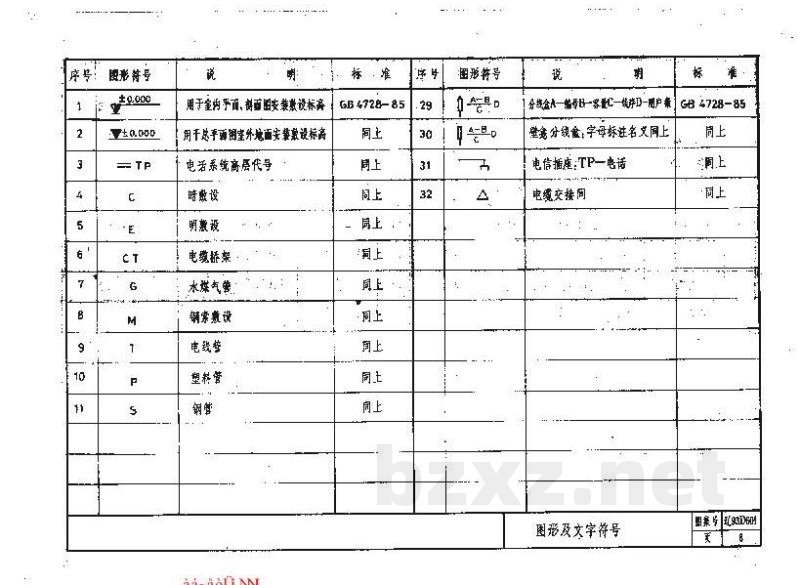 序号 图形符号 说 明 标 准 序号 图形符号 说 明 标 准
1 ±0.000 用于室内平面、剖面图安装敷设标高 GB 4728-85 29 A-B C D 分线盒A—编号B—容量C—线序D—用户数 GB 4728-85
2 ±0.000 用于总平面图室外地面安装敷设标高 同上 30 A-B C D 壁龛分线盒,字母标注名义同上 同上
3 =TP 电话系统高层代号 同上 31 电信插座;TP—电话 同上
4 C 暗敷设 同上 32 △ 电缆交接间 同上
5 E 明敷设 同上
6 CT 电缆桥架 同上
7 G 水煤气管 同上
8 M 钢索敷设 同上
9 T 电线管 同上
10 P 塑料管 同上
11 S 钢管 同上
bzxz.net
图形及文字符号 图集号
页 8